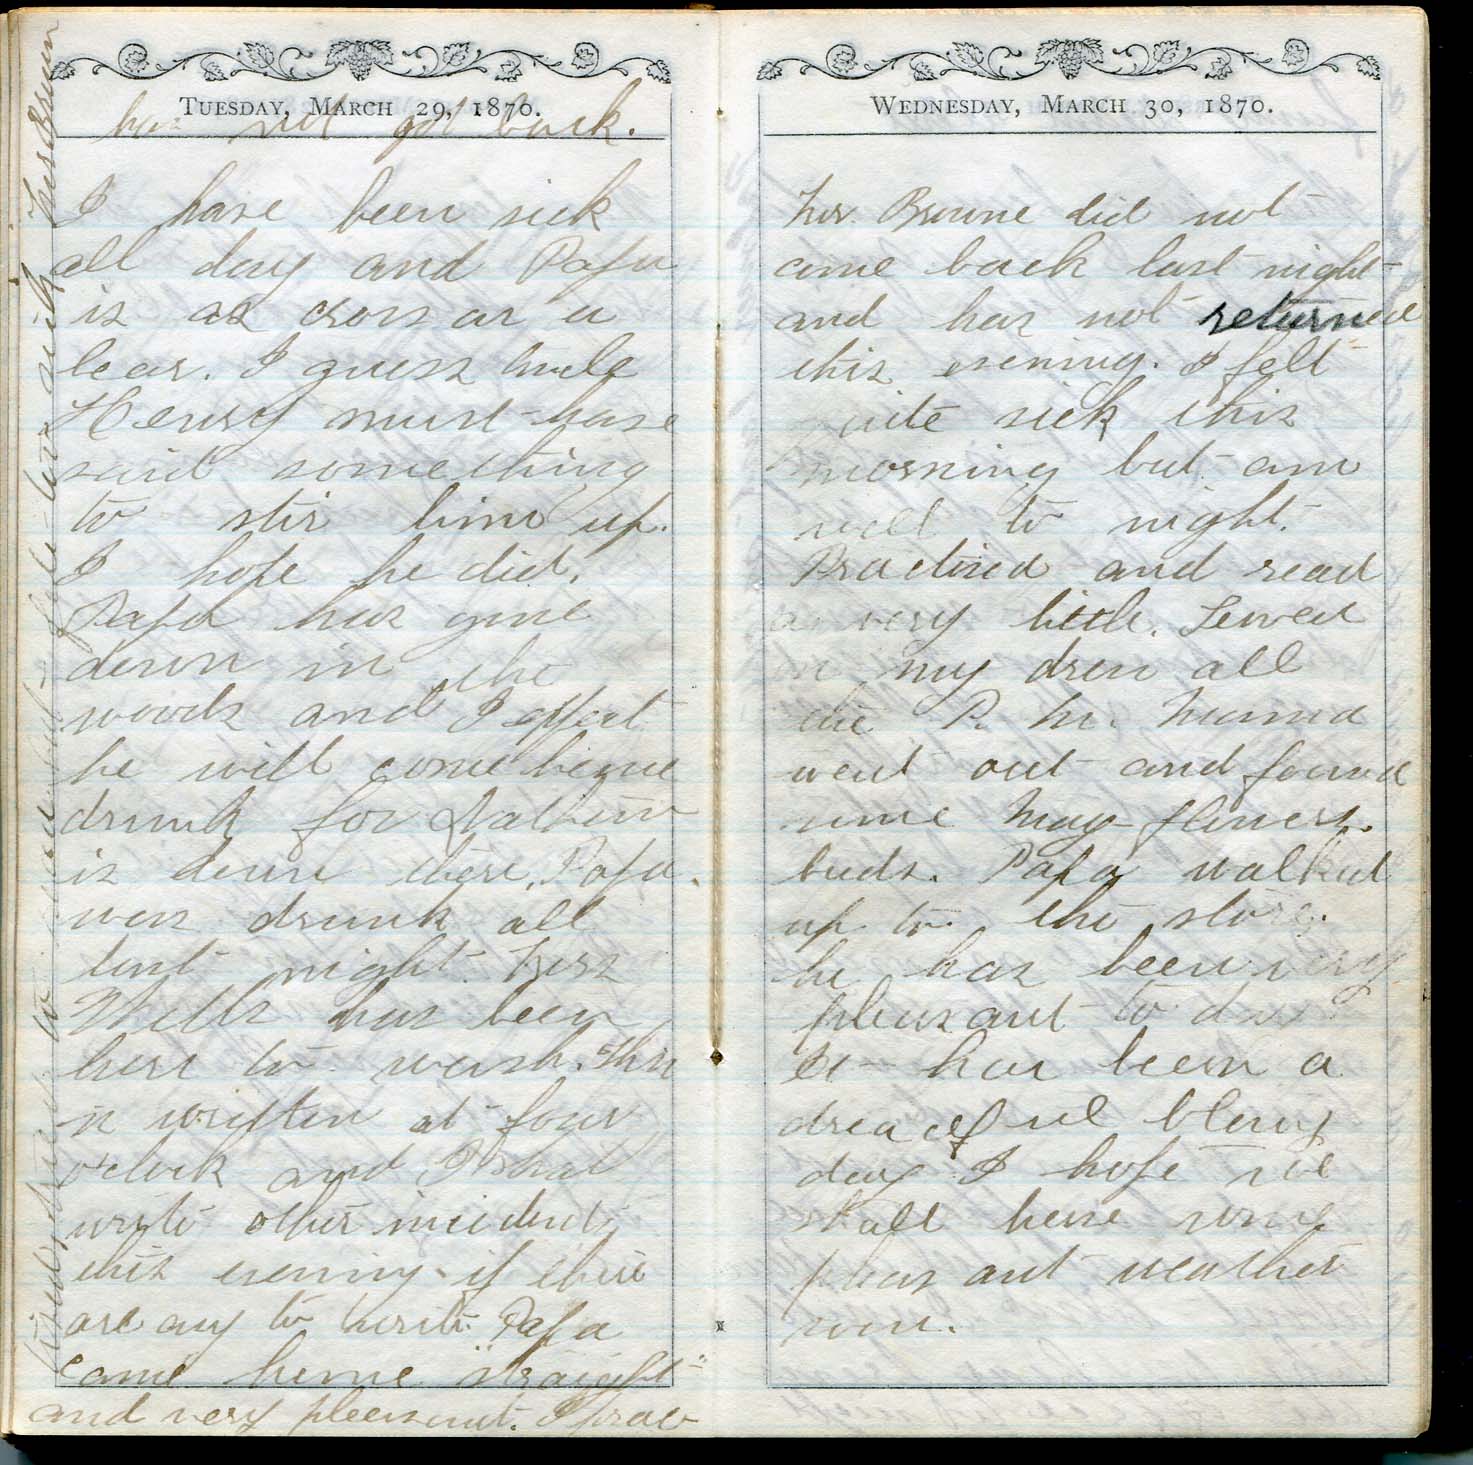 TUESDAY, MARCH 29, 1870.
I have been sick
all day and Papa
is as cross as a
bear. I guess Uncle
Henry must have
said something
to stir him up.
I hope he did.
Papa has gone
down in the
woods and I expect
he will come home
drunk for
is down there. Papa
was drunk all
last night. Mrs
Wells has been
here to wash. This
is written at four
o'clock and I shall
write other incidents
this evening if there
are any to write. Papa
came home "straight"
and very pleasant. I prac
ticed, tried to read but felt too sick Mrs Brown
has not got back.
WEDNESDAY, MARCH 30, 1870.
Mrs Browne did not
come back last night
and has not returned
this evening. I felt
quite sick this
morning but am
well to night.
Practised and read
a very little. Sewed
on my dress all
the P. M. Mama
went out and found
some May-flowers
buds. Papa walked
up to the store.
he has been very
pleasant to day
It has been a
dreadful blowy
day I hope we
shall have some
pleasant weather
soon.